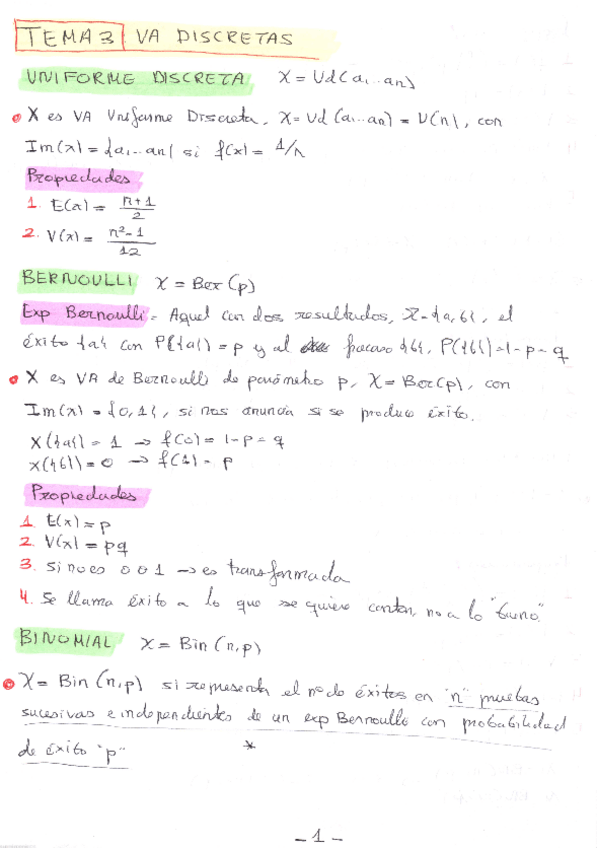 TEMA 3 VA DISCRETAS
UNIFORME DISCRETA X = Ud(a₁...an)
X es VA Uniforme Discreta, X = Ud (a₁...an) = U(n), con
Im(x) = {a₁...an} si f(x) = 1/n
Propiedades
1. E(x) = n+1/2
2. V(x) = n²-1/12
BERNOULLI X = Ber(p)
Exp Bernoulli = Aquel con dos resultados, Ω={a,b}, el
éxito {a} con P({a}) = p y el fracaso {b}, P({b})=1-p=q
X es VA de Bernoulli de parámetro p, X = Ber(p), con
Im(x) = {0,1}, si nos anuncia si se produce éxito.
X({a}) = 1 → f(0) = 1-p = q
X({b}) = 0 → f(1) = p
Propiedades
1. E(x) = p
2. V(x) = pq
3. Si no es 0 o 1 → es transformada
4. Se llama éxito a lo que se quiere contar, no a lo "bueno".
BINOMIAL X = Bin(n,p)
X = Bin (n,p) si representa el nº de éxitos en "n" pruebas
sucesivas e independientes de un exp Bernoulli con probabilidad
de éxito "p" *
- 1 -